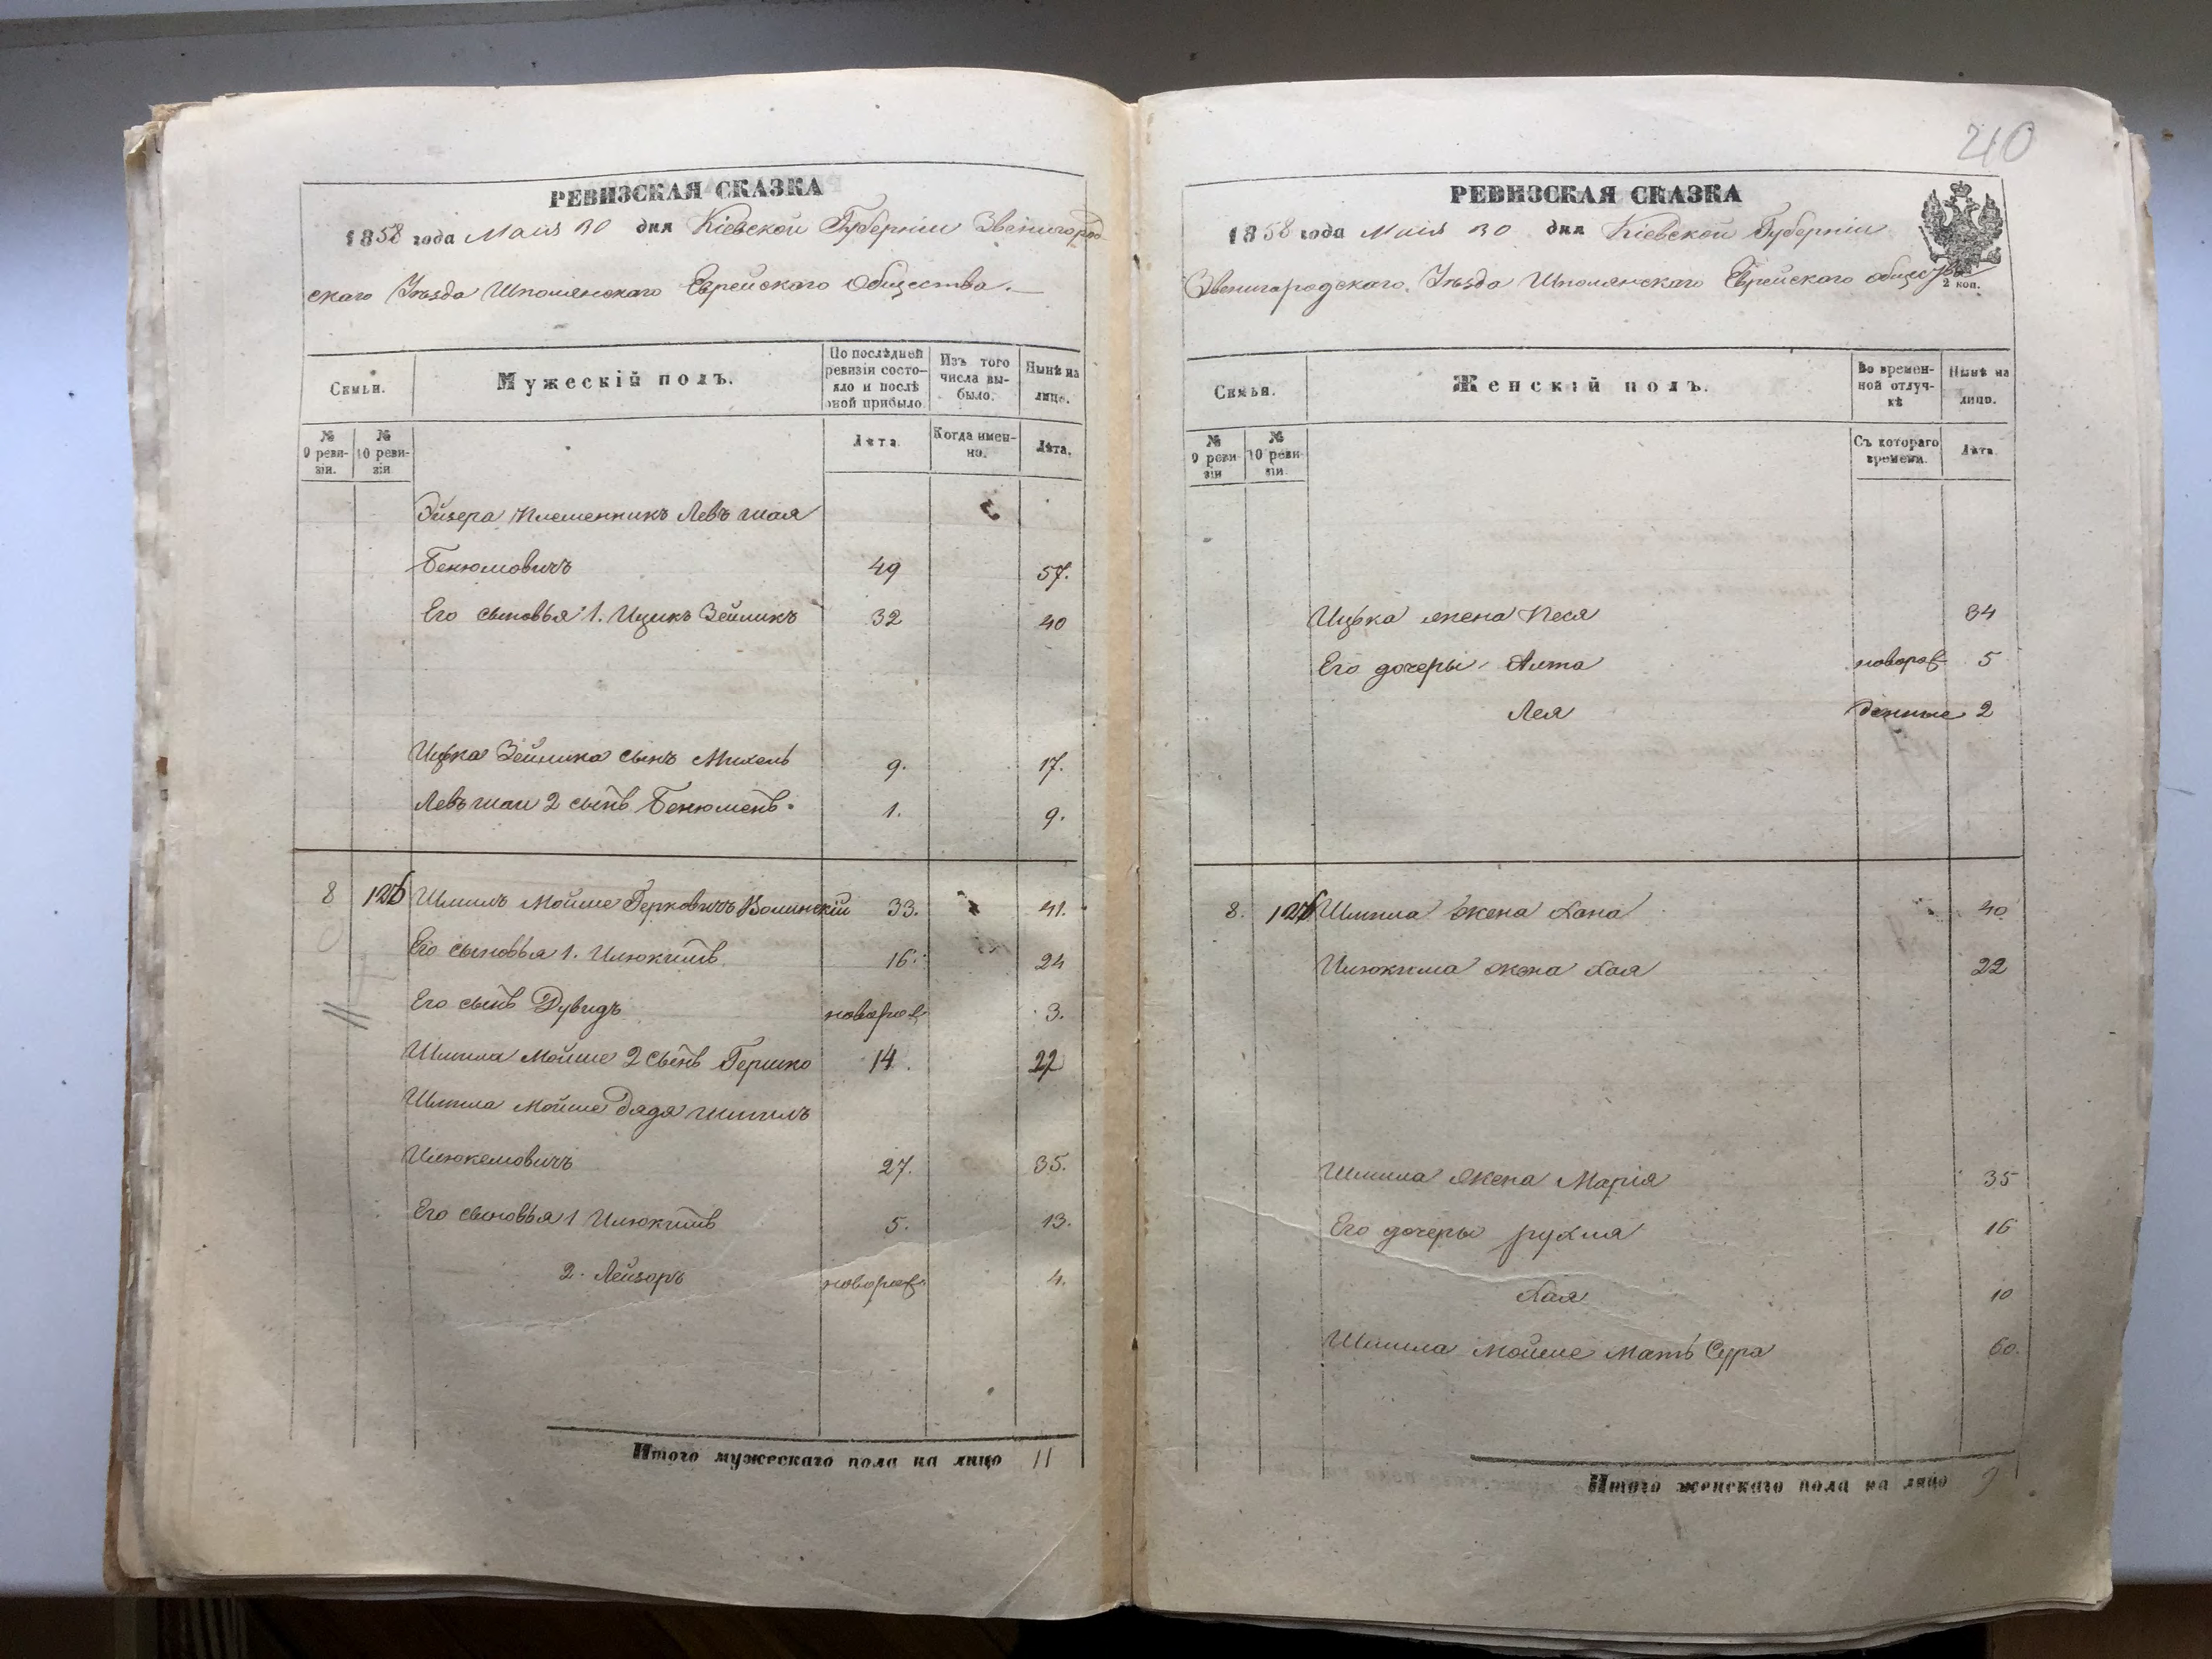 РЕВИЗСКАЯ СКАЗКА
1858 года Маія 30 дня Кіевской Губерніи Звенигород-
скаго Уѣзда Шполянскаго Еврейскаго Общества.
Семьи.
Мужескій полъ.
По послѣдней ревизіи состо-яло и послѣ оной прибыло.
Изъ того числа вы-было.
Нынѣ на лицо.
№ 9 реви-зіи.
№ 10 реви-зіи
Лѣта
Когда имен-но.
Лѣта.
Эйзера Племенникъ Левъ шая
Бенюмовичъ 49 57.
Его сыновья 1. Ицикъ Зейликъ 32 40
Ицька Зейлика сынъ Михель 9. 17.
Левъ шаи 2 сынъ Бенюменъ. 1. 9.
8 126 Шмилъ Мойше Герковичъ Волинскій 33. 41.
Его сыновья 1. Илюкимъ 16. 24
Его сынъ Дувидъ новорож. 3.
Шмила Мойше 2 сынъ Гершко 14. 22
Шмила Мойше дядя Шмилъ
Илюкемовичъ 27. 35.
Его сыновья 1 Илюкимъ 5. 13.
2. Лейзоръ новорож. 4.
Итого мужескаго пола на лицо 11
210
РЕВИЗСКАЯ СКАЗКА
1858 года Маія 30 дня Кіевской Губерніи
Звенигародскаго Уѣзда Шполянскаго Еврейскаго общества
2 коп.
Семьи.
Женскій полъ.
Во времен-ной отлуч-кѣ
Нынѣ на лицо.
№ 9 реви-зіи
№ 10 реви-зіи
Съ котораго времени.
Лѣта
Ицька жена Песя 34
Его дочеры Алта новорож- 5
Лея денные 2
8. 126 Шмила жена Хана 40
Илюкима жена Хая 22
Шмила жена Марія 35
Его дочеры рухля 16
Хая 10
Шмила Мойше мать Сура 60.
Итого женскаго пола на лицо 9